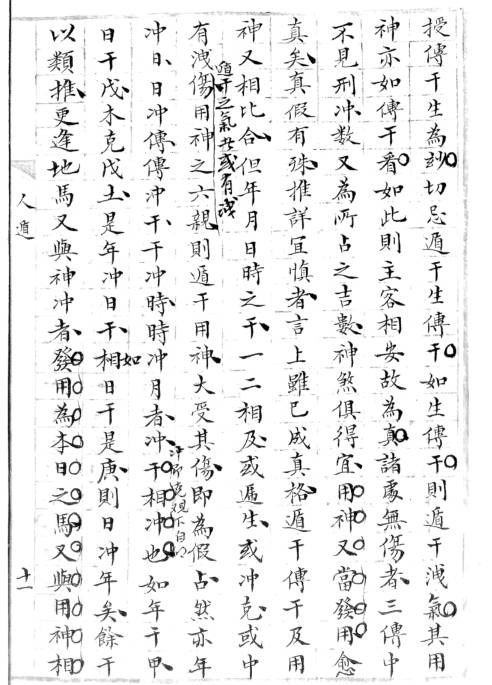 授傳干生為紗切忌遁干生傳干如生傳干則遁干洩氣其用
神亦如傳干看如此則主客相安故為真諸處無傷者三傳中
不見刑冲数又為所占之吉數神煞俱得宜用神又當發用愈
真矣真假有殊推詳宜慎者言上雖已成真格遁干傳干及用
神又相比合但年月日時之干一二相及或遁生或冲克或中
遁干之氣
或有洩
有洩傷用神之六親則遁干用神大受其傷即為假占然亦年
冲日日冲傳傳冲干干冲時時冲月者冲干相冲也如年干甲
冲所
日干戊木克戊土是年冲日干如
相日干是庚則日冲年矣餘干
以類推更逢地馬又與神冲者發用為本日之馬又與用神相
人遁
十一